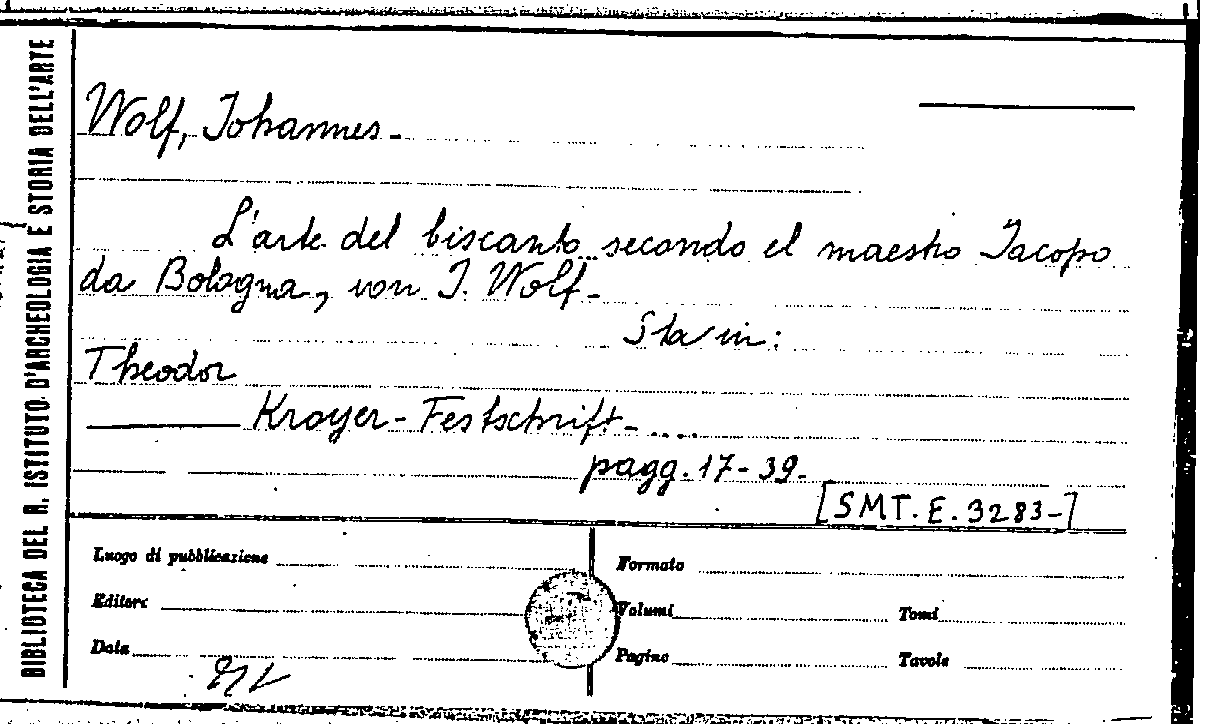 BIBLIOTECA DEL R. ISTITUTO D'ARCHEOLOGIA E STORIA DELL'ARTE
Wolf, Johannes -
L'arte del biscanto secondo el maestro Jacopo
da Bologna, von J. Wolf -
Sta in:
Theodor
Kroyer - Festschrift - ....
pagg. 17-39 -
[SMT. E. 3283-]
Luogo di pubblicazione
Formato
Editore
Volumi
Tomi
Data
Pagine
Tavole